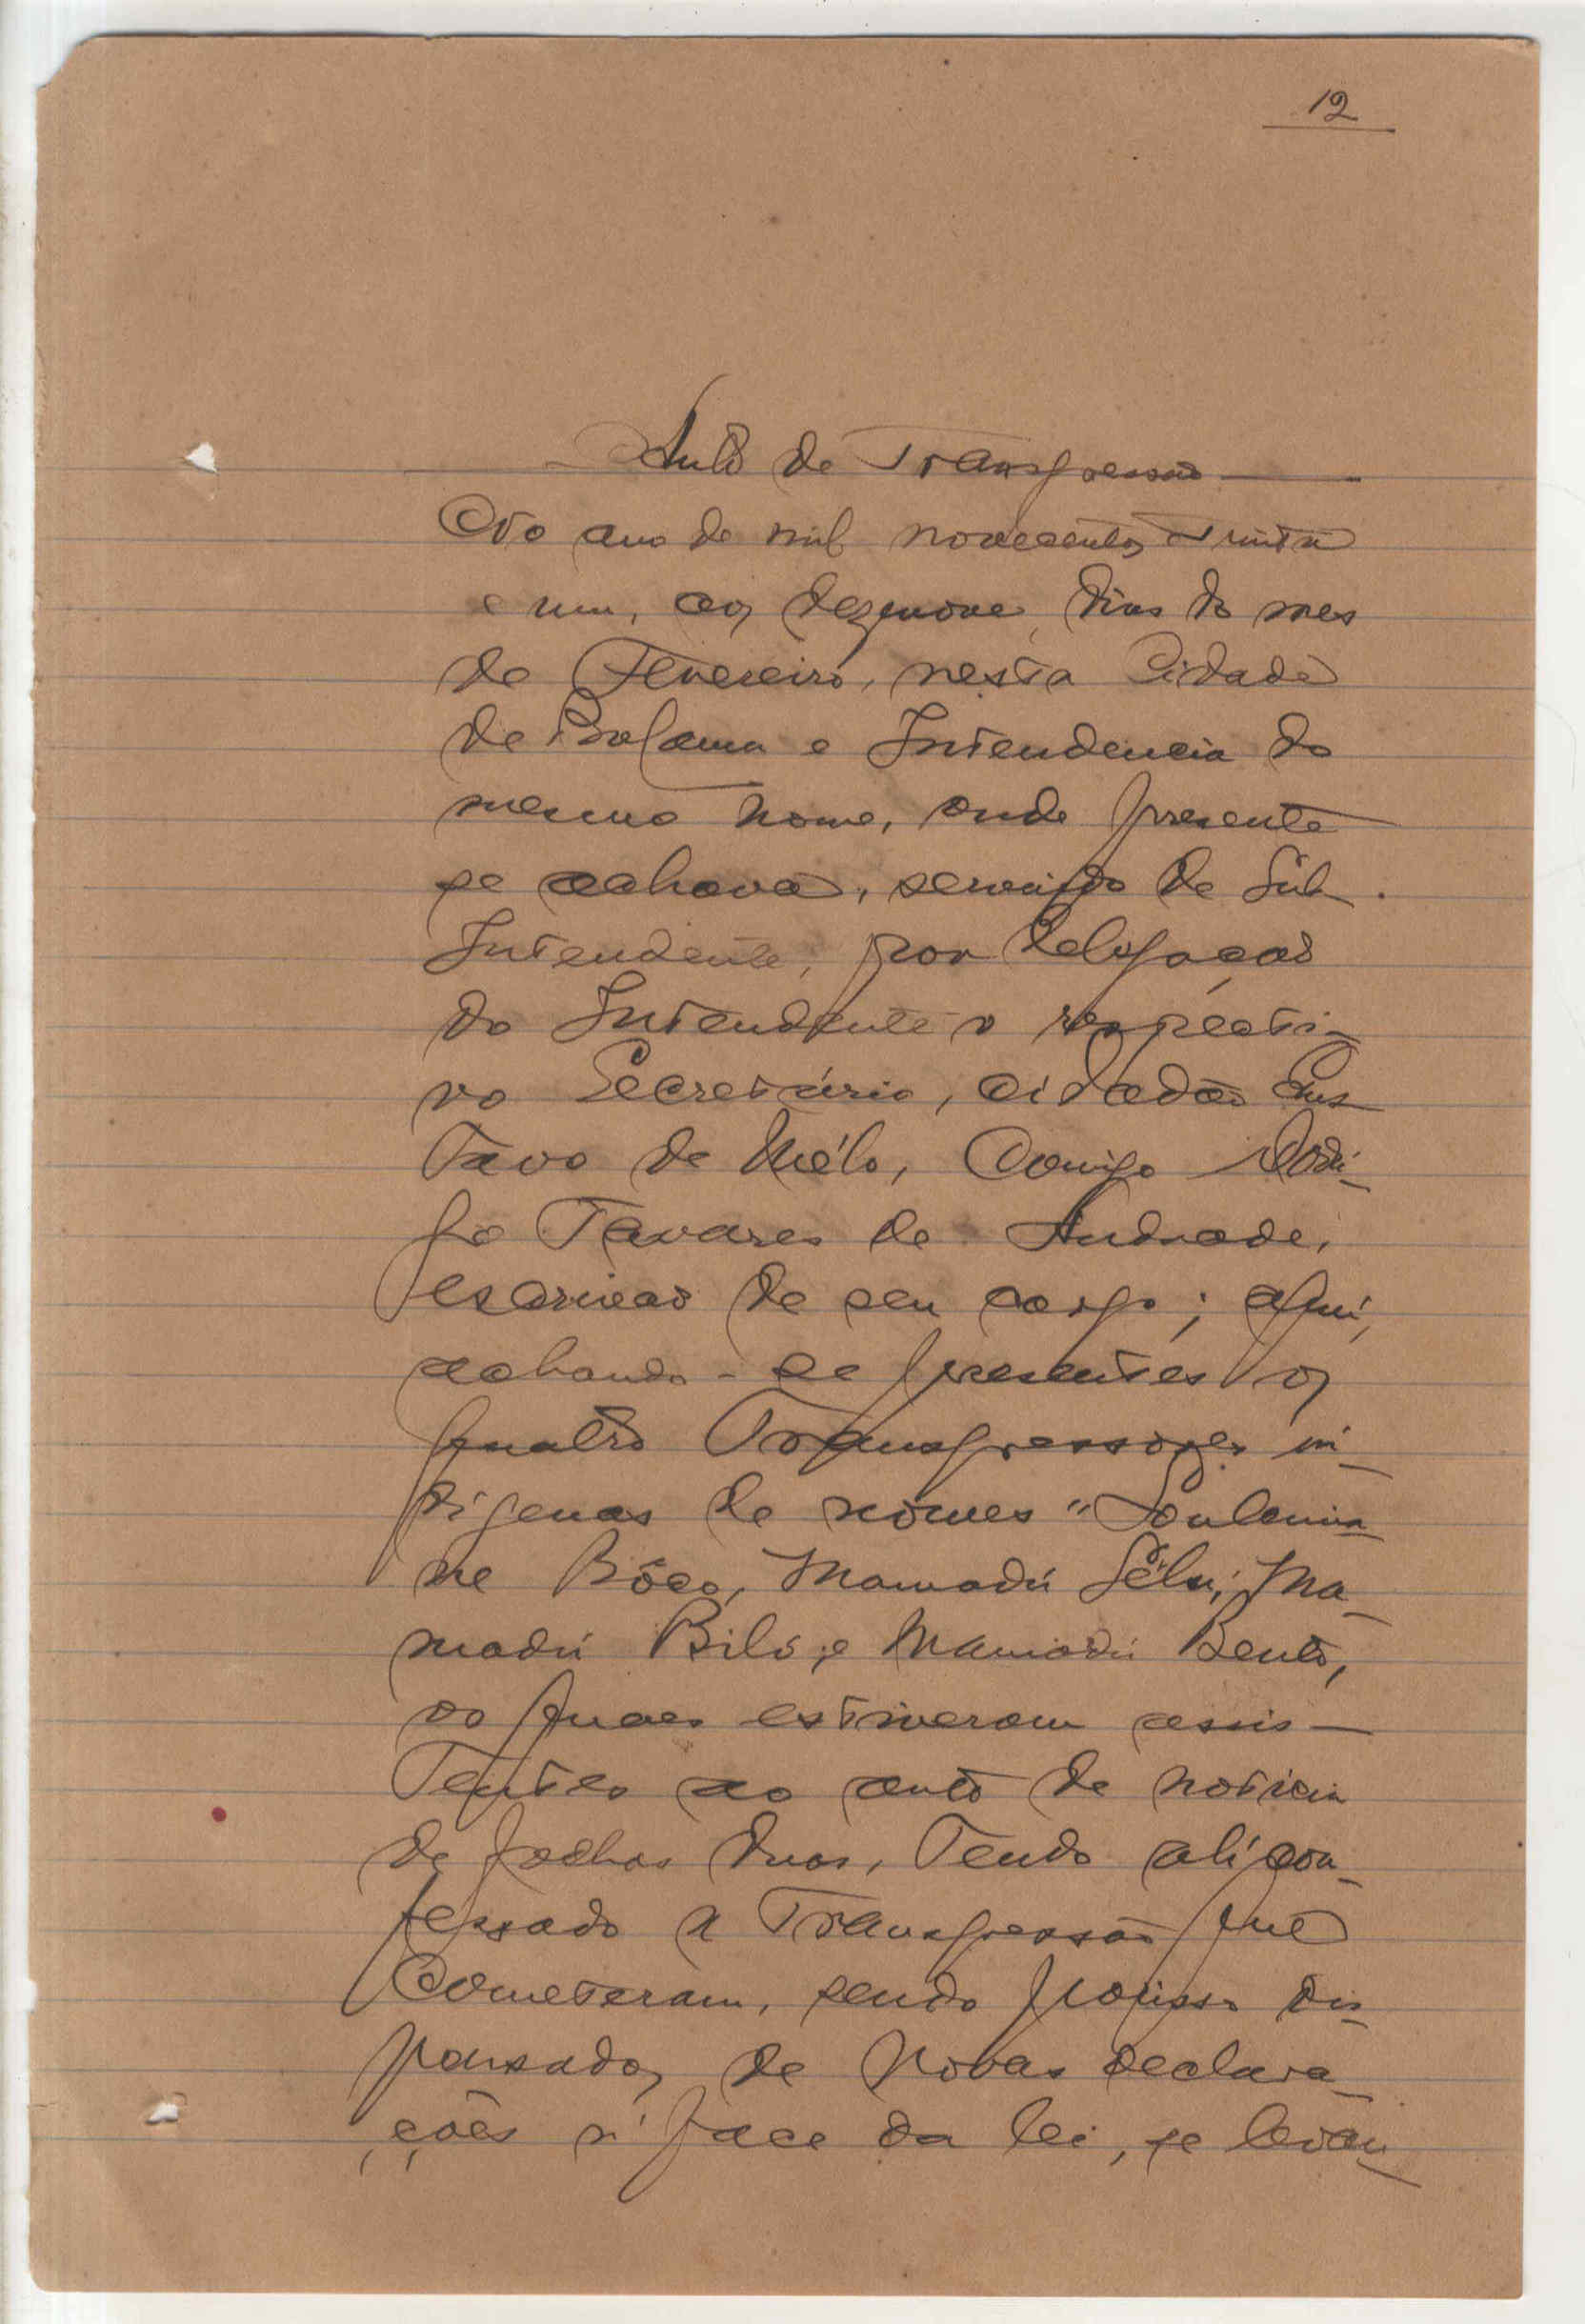 12
Auto de Transgressão
No ano de mil novecentos trinta
e um, aos dezenove dias do mes
de Fevereiro, nesta Cidade
de Bolama e Intendencia do
mesmo nome, onde presente
se achava, servindo de Sub-
Intendente, por delegação
do Intendente o respecti-
vo Secretário, cidadão Gus-
tavo de Mélo, comigo
Tavares de Andrade,
escrivão de seu cargo; aqui,
achando-se presentes os
quatro Transgressores in-
digenas de nomes "Soulema-
ne Bóco, Mamadú Sélu, Ma-
madú Biló, e Mamadú Bento,
os quaes estiveram assis-
tentes ao auto de noticia
de folhas duas, tendo ali con-
fessado a Transgressão que
Cometeram, sendo porisso dis-
pensados de novas declara-
ções á face da lei, se levan-